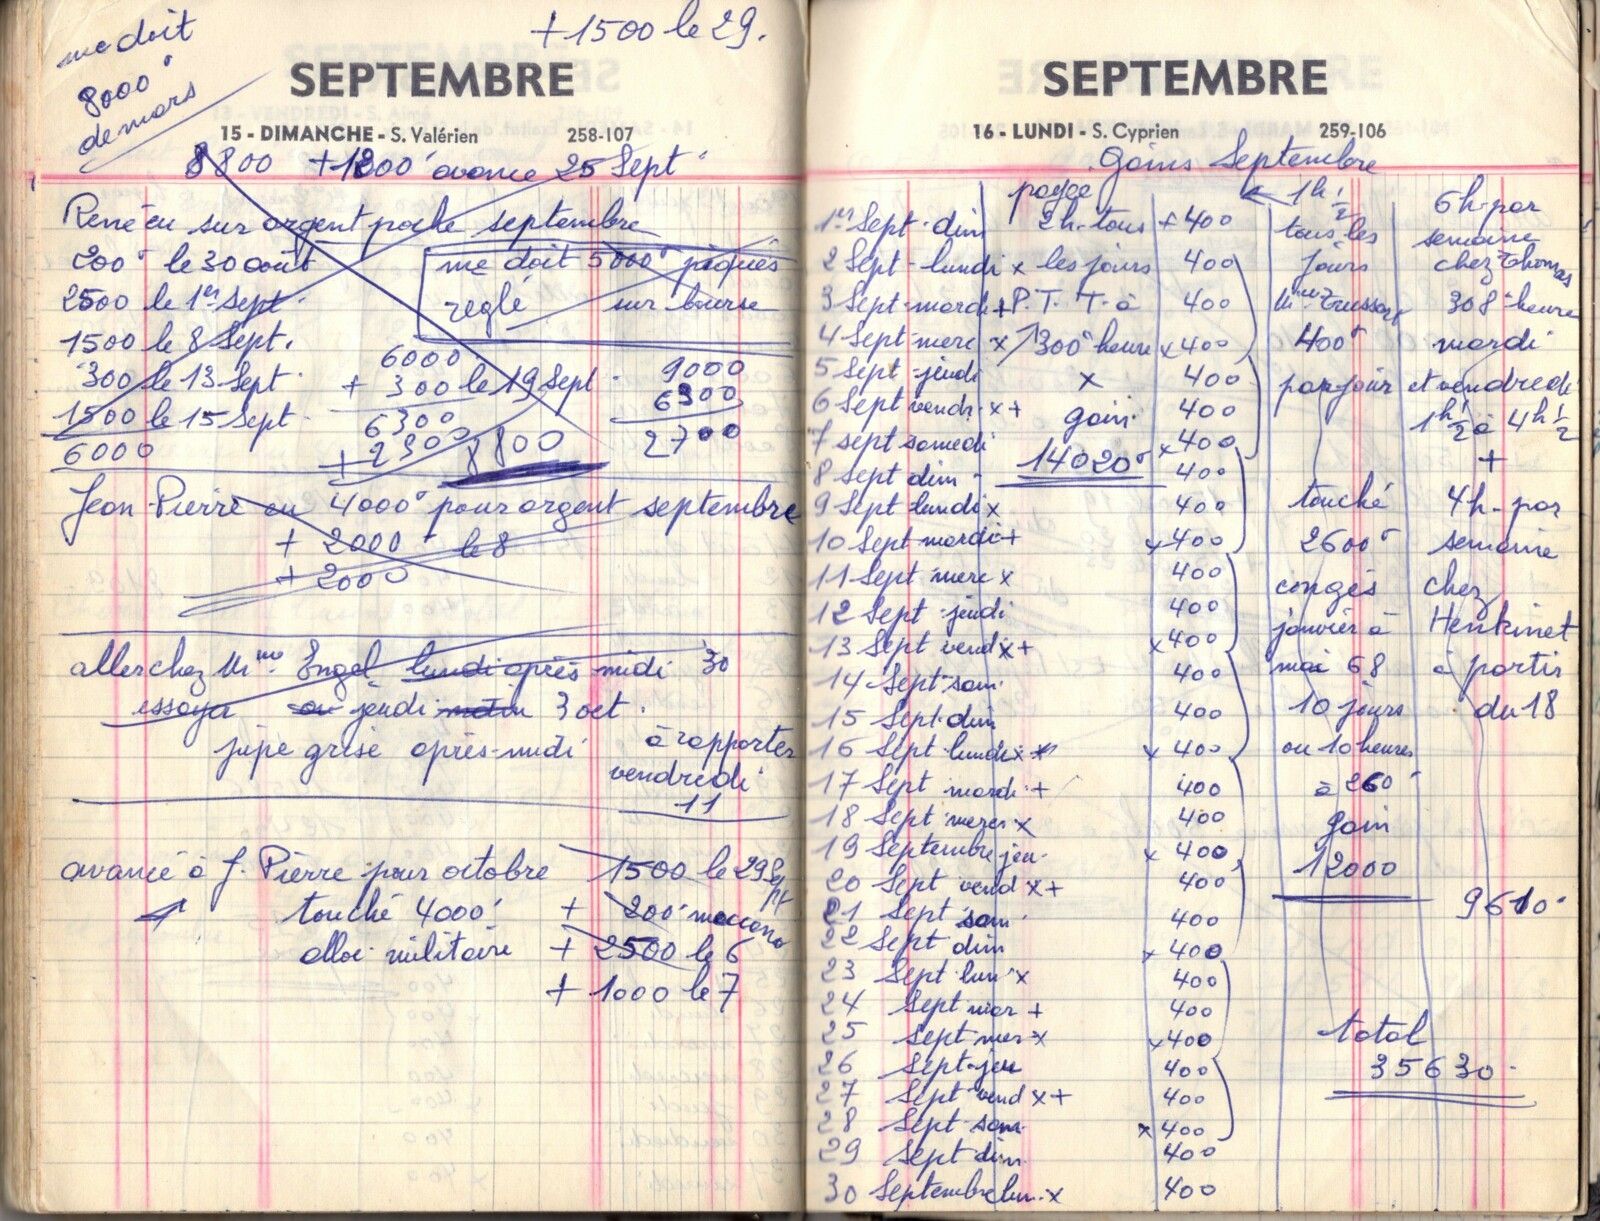 me doit
8000
de mars
+ 1500 le 29.
SEPTEMBRE
15 - DIMANCHE - S. Valérien 258-107
8800 + 1200 avance 25 Sept
René eu sur argent poche septembre
200 le 30 août
2500 le 1er Sept
1500 le 8 Sept.
300 le 13 Sept.
1500 le 15 Sept.
6000
me doit 5000 pâques
reglé sur bourse
6000
+ 300 le 19 Sept.
6300
+ 2500
8800
9000
6300
2700
Jean Pierre eu 4000 pour argent septembre
+ 2000 le 8
+ 2000
aller chez Mme Engel lundi après midi 30
essaya ou jeudi matin 3 oct.
jupe grise après-midi
à rapporter
vendredi
11
avancé à J. Pierre pour octobre 1500 le 29 Sept
touché 4000 + 200 meccano
alloc. militaire + 2500 le 6
+ 1000 le 7
SEPTEMBRE
16 - LUNDI - S. Cyprien 259-106
Gains Septembre
1er Sept. dim + 400
2 Sept. lundi x 400
3 Sept. mardi + 400
4 Sept. merc x x 400
5 Sept. jeudi 400
6 Sept. vendr. x + 400
7 sept samedi x 400
8 Sept dim 400
9 Sept lundi x 400
10 Sept mardi + x 400
11 Sept merc x 400
12 Sept jeudi 400
13 Sept vend x + x 400
14 Sept sam 400
15 Sept. dim 400
16 Sept lundi x x 400
17 Sept mardi + 400
18 Sept merc x 400
19 Septembre jeu. x 400
20 Sept vend x + 400
21 Sept sam. 400
22 Sept dim x 400
23 Sept lun x 400
24 Sept mar + 400
25 Sept mer x x 400
26 Sept. jeu 400
27 Sept vend x + 400
28 Sept. sam x 400
29 Sept dim 400
30 Septembre lun. x 400
payée
2 h. tous
les jours
P.T.T. à
300 heure
x
gain
14020
1h 1/2
tous les
jours
Mme Trussart
400
par jour
touché
2600
congés
janvier à
mai 68
10 jours
ou 10 heures
à 260
gain
12000
6 h. par
semaine
chez Thomas
308 heure
mardi
et vendredi
1h 1/2 à 4h 1/2
+
4 h. par
semaine
chez
Henkinet
à partir
du 18
9610
total
35630